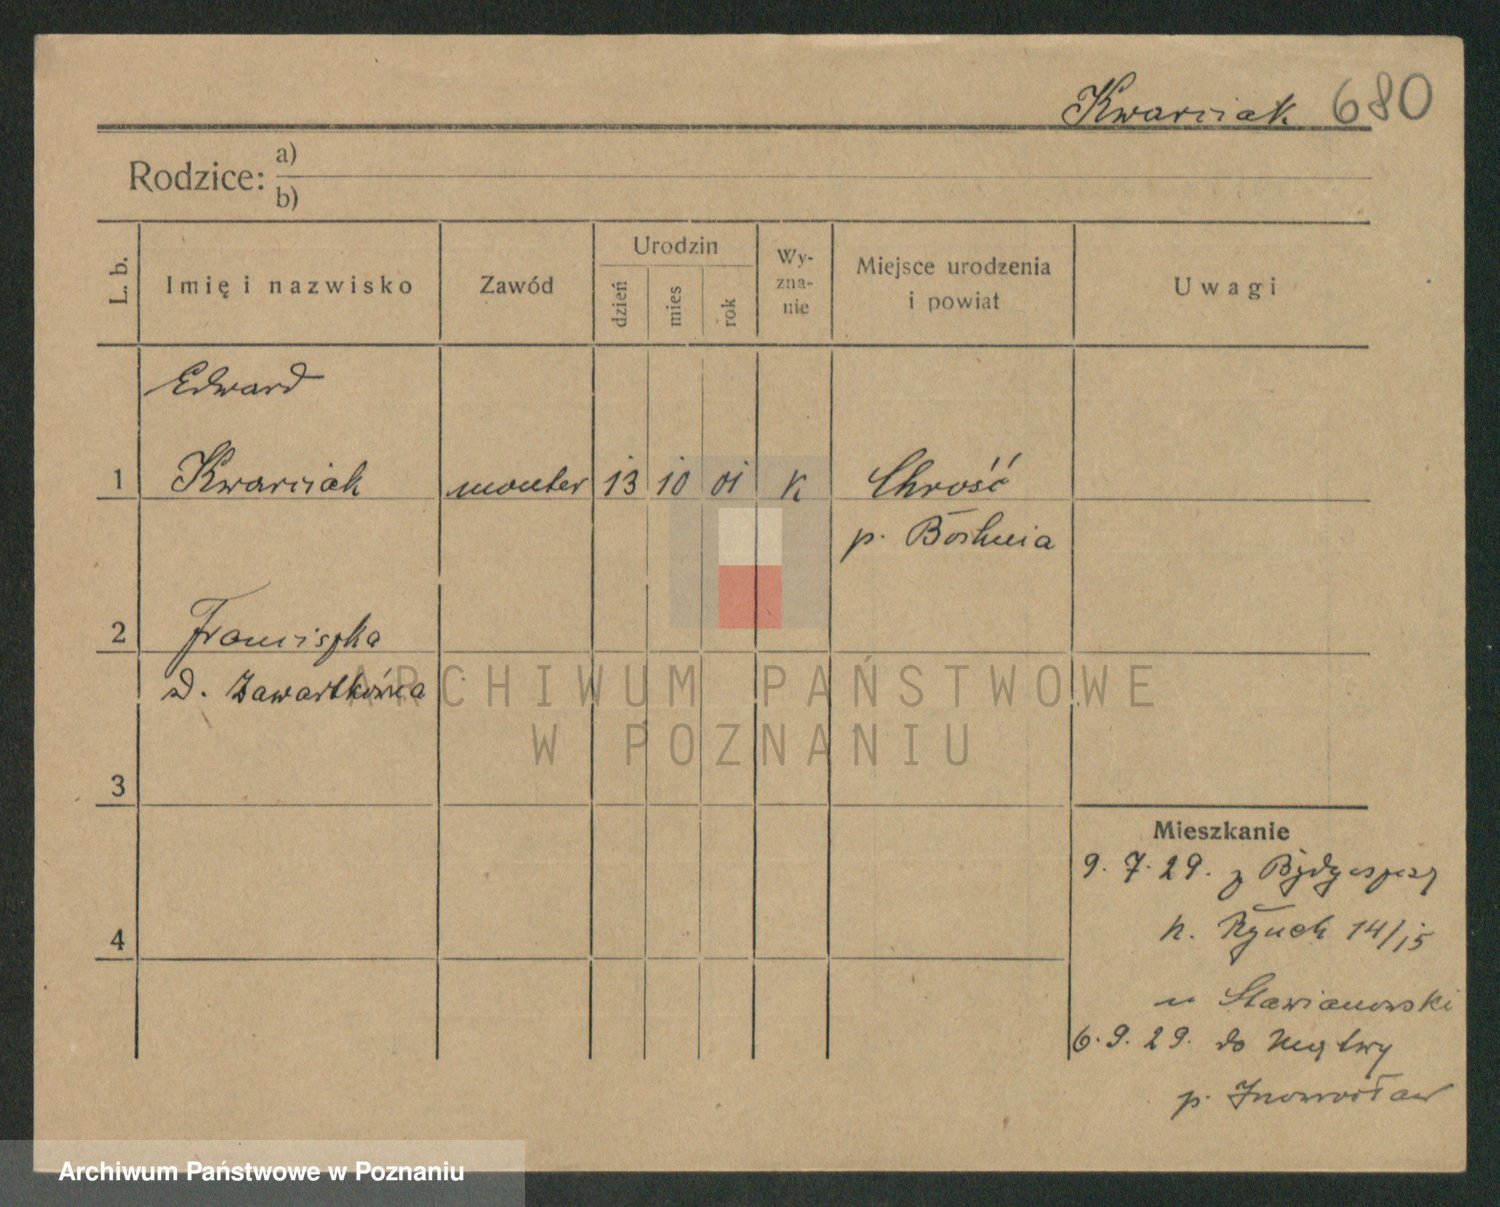 Kwarciak 680
Rodzice: a)
b)
L. b.
Imię i nazwisko
Zawód
Urodzin
dzień
mies
rok
Wy-
zna-
nie
Miejsce urodzenia
i powiat
Uwagi
Edward
1 Kwarciak monter 13 10 01 K Chrość
p. Bochnia
2 Franciszka
d. Zawartkówna
3
4
Mieszkanie
9. 7. 29. z Bydgoszcz
n. Rynek 14/15
u Stawianowski
6. 9. 29. do Mątwy
p. Inowrocław
ARCHIWUM PAŃSTWOWE
W POZNANIU
Archiwum Państwowe w Poznaniu